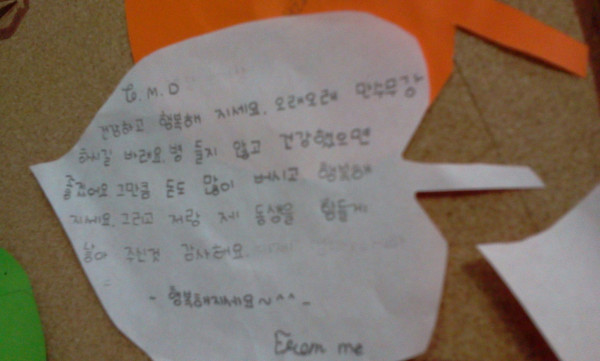 T.M.D
건강하고 행복해 지세요. 오래오래 만수무강
하시길 바래요. 병 들지 않고 건강했으면
좋겠어요 그만큼 돈도 많이 버시고 행복해
지세요. 그리고 저랑 제 동생을 힘들게
낳아 주신것 감사해요.
- 행복해지세요~^^ -
From me